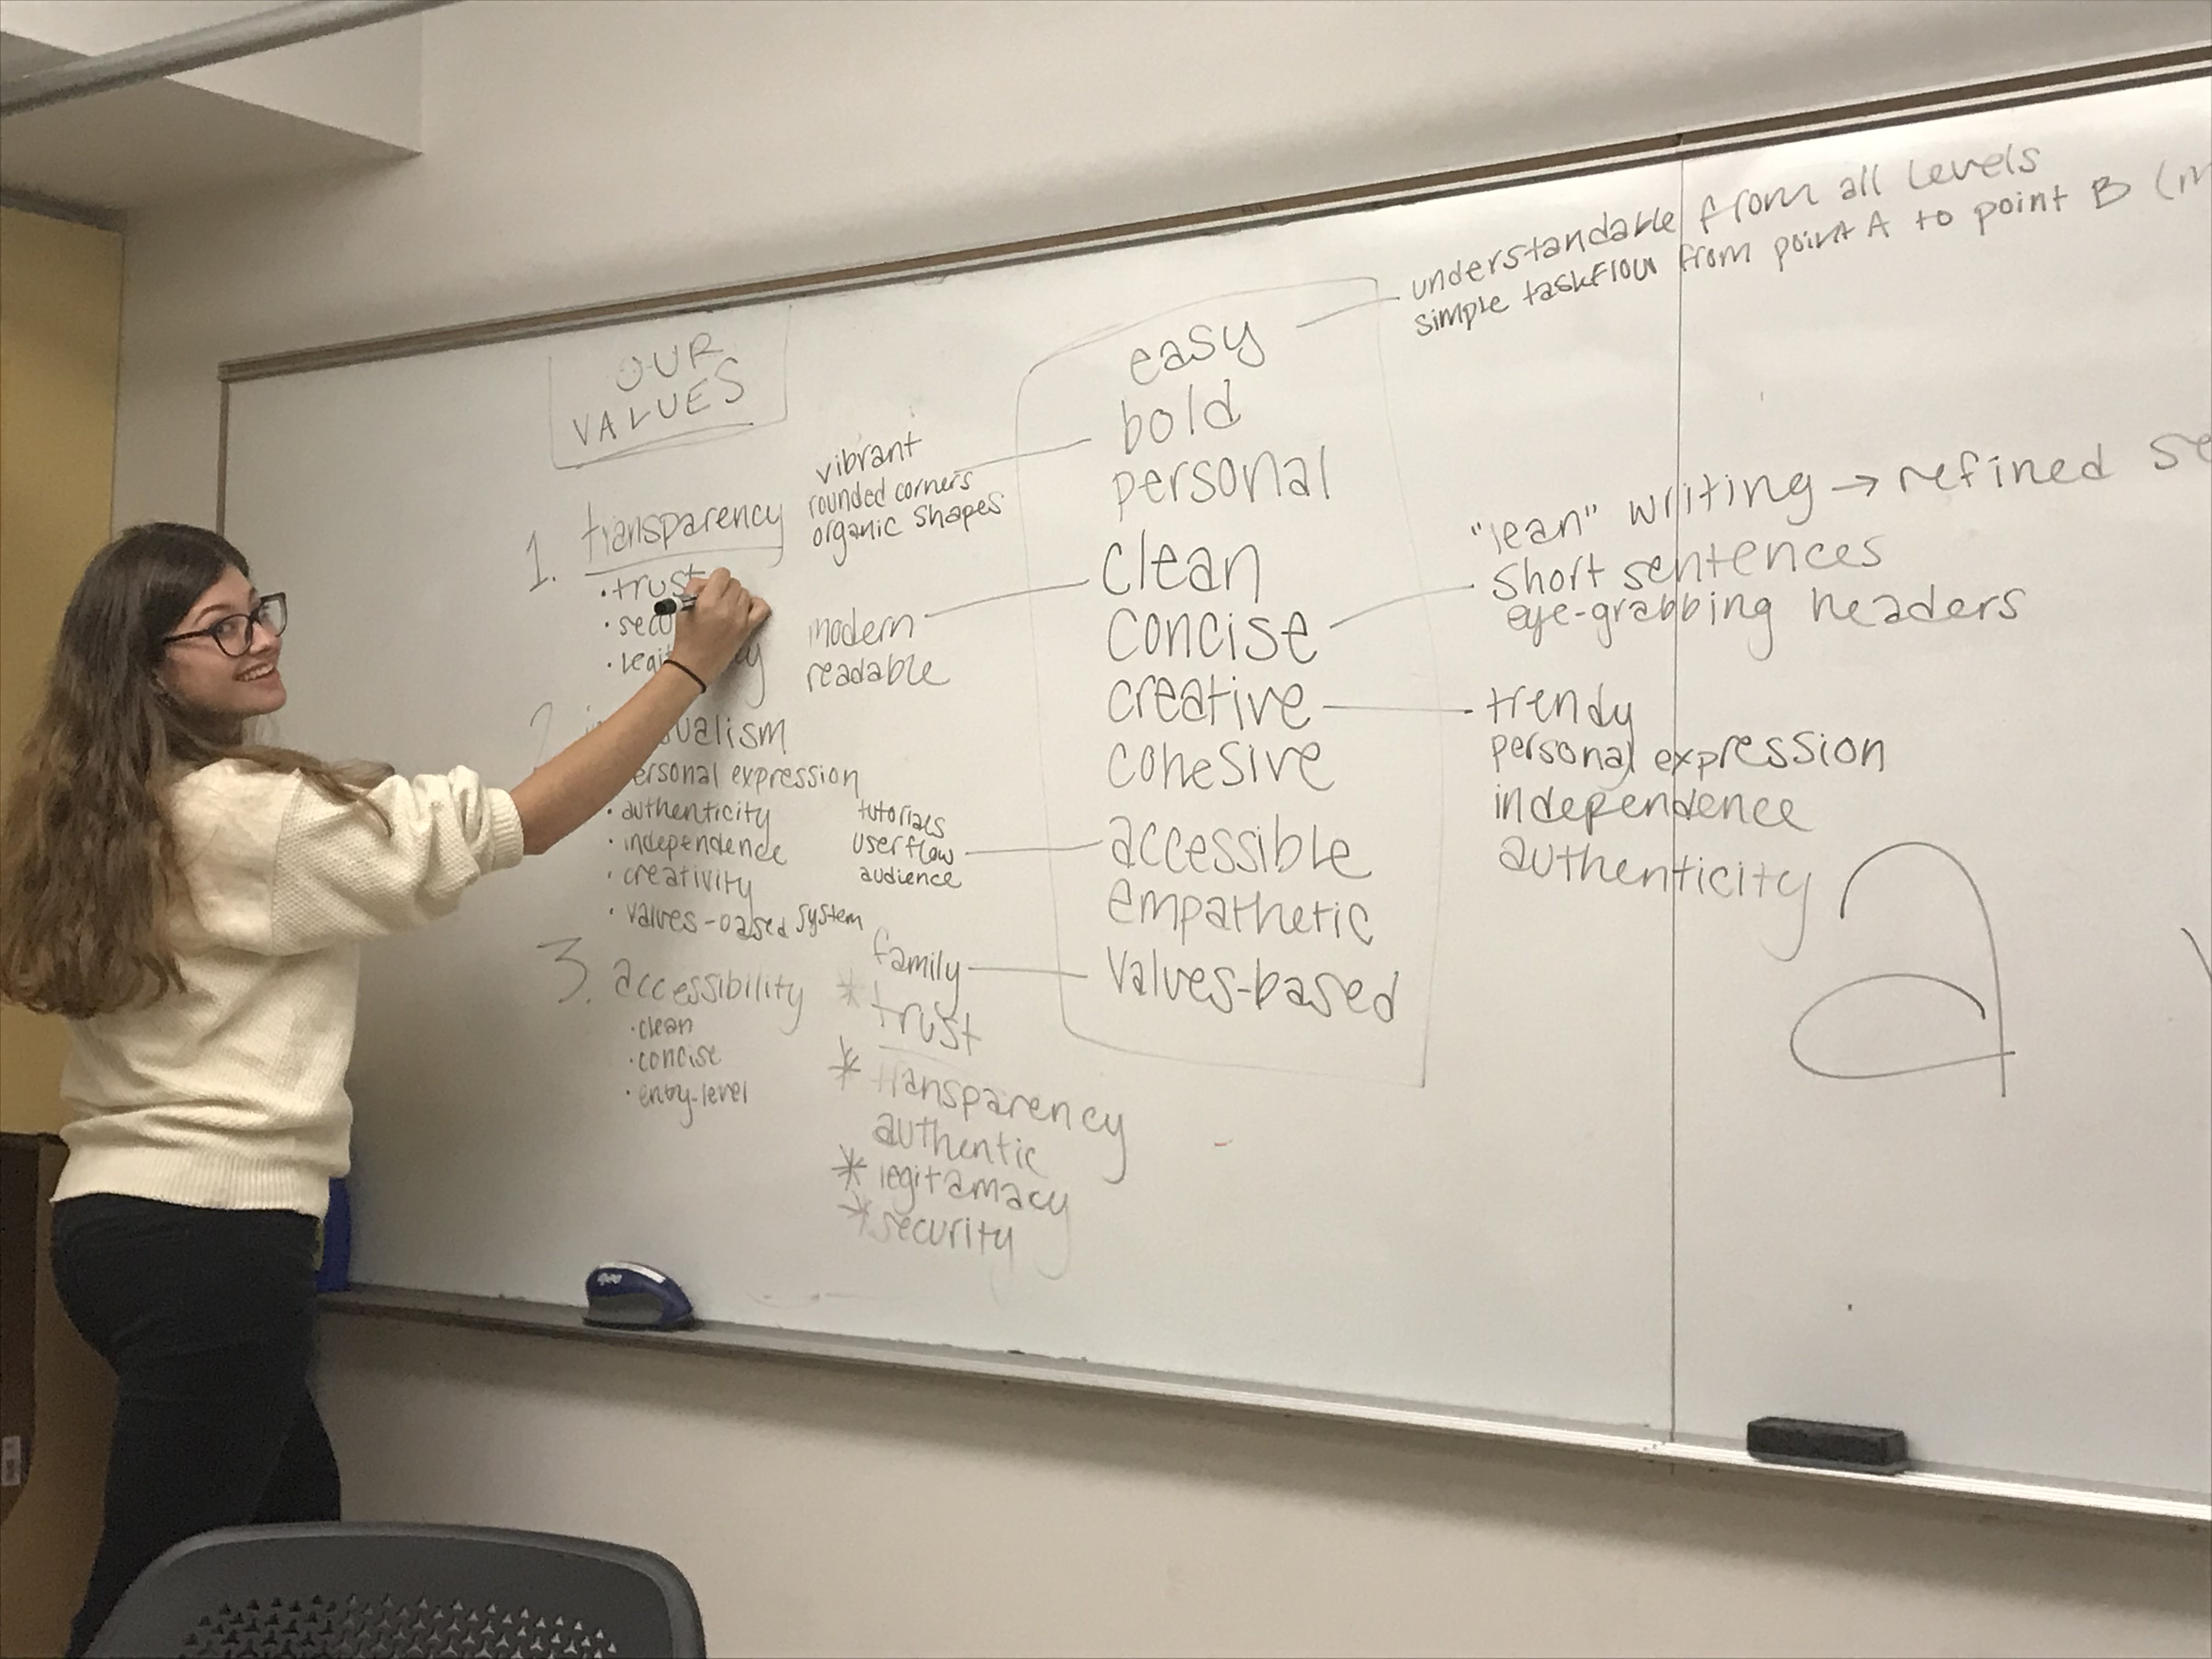 OUR
VALUES
1. transparency
• trust
• secu
• legi
2.
ualism
ersonal expression
• authenticity
• independence
• creativity
• values-based system
3. accessibility
• clean
• concise
• entry-level
vibrant
rounded corners
organic shapes
modern
readable
tutorials
userflow
audience
family
* trust
* transparency
authentic
* legitamacy
* security
easy
bold
personal
clean
concise
creative
cohesive
accessible
empathetic
values-based
understandable from all levels
simple taskflow from point A to point B (
"lean" writing → refined se
short sentences
eye-grabbing headers
trendy
personal expression
independence
authenticity
a
expo